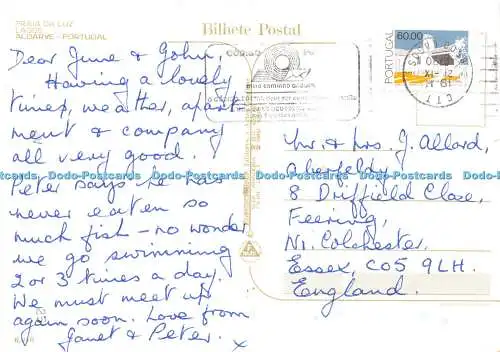 PRAIA DA LUZ
LAGOS
ALGARVE - PORTUGAL
Bilhete Postal
Dear June & John,
Having a lovely
time, weather, apart-
ment & company
all very good.
Peter says he has
never eaten so
much fish – no wonder
we go swimming
2 or 3 times a day.
We must meet up
again soon. Love from
Janet & Peter.
x
PORTUGAL
60.00
CTT
Mr & Mrs. J. Allard,
Aberfeldy,
8 Driffield Close,
Feering,
Nr. Colchester,
Essex, CO5 9LH.
England.
Dodo-Postcards Dodo-Postcards Dodo-Postcards Dodo-Postcards